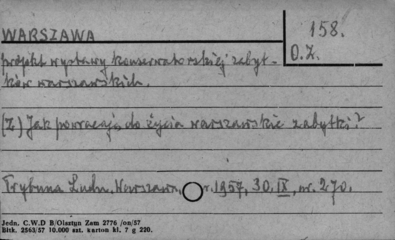 WARSZAWA
158.
O.Z.
projekt wystawy konserwatorskiej zabyt-
ków warszawskich.
(Z) Jak powracają do życia warszawskie zabytki?
Trybuna Ludu, Warszawa, r. 1957, 30.IX, nr. 270.
Jedn. C.W.D B/Olsztyn Zam 2776 /on/57
Bltk. 2563/57 10.000 szt. karton kl. 7 g 220.